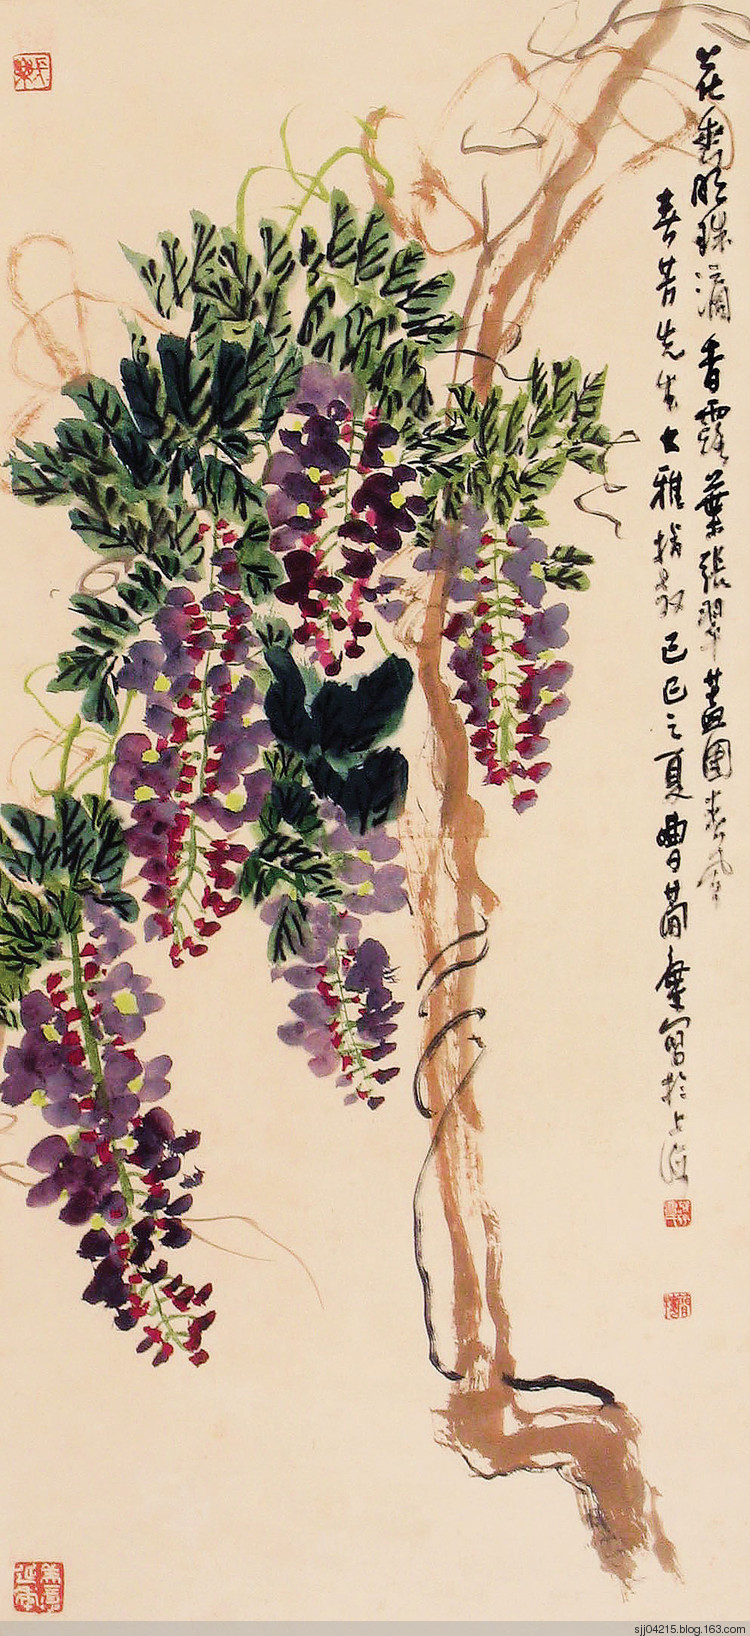 花垂明珠滴香露葉張翠蓋團春風
春芳先生大雅指教己巳之夏曹蕑廔寫於上海
sjj04215.blog.163.com